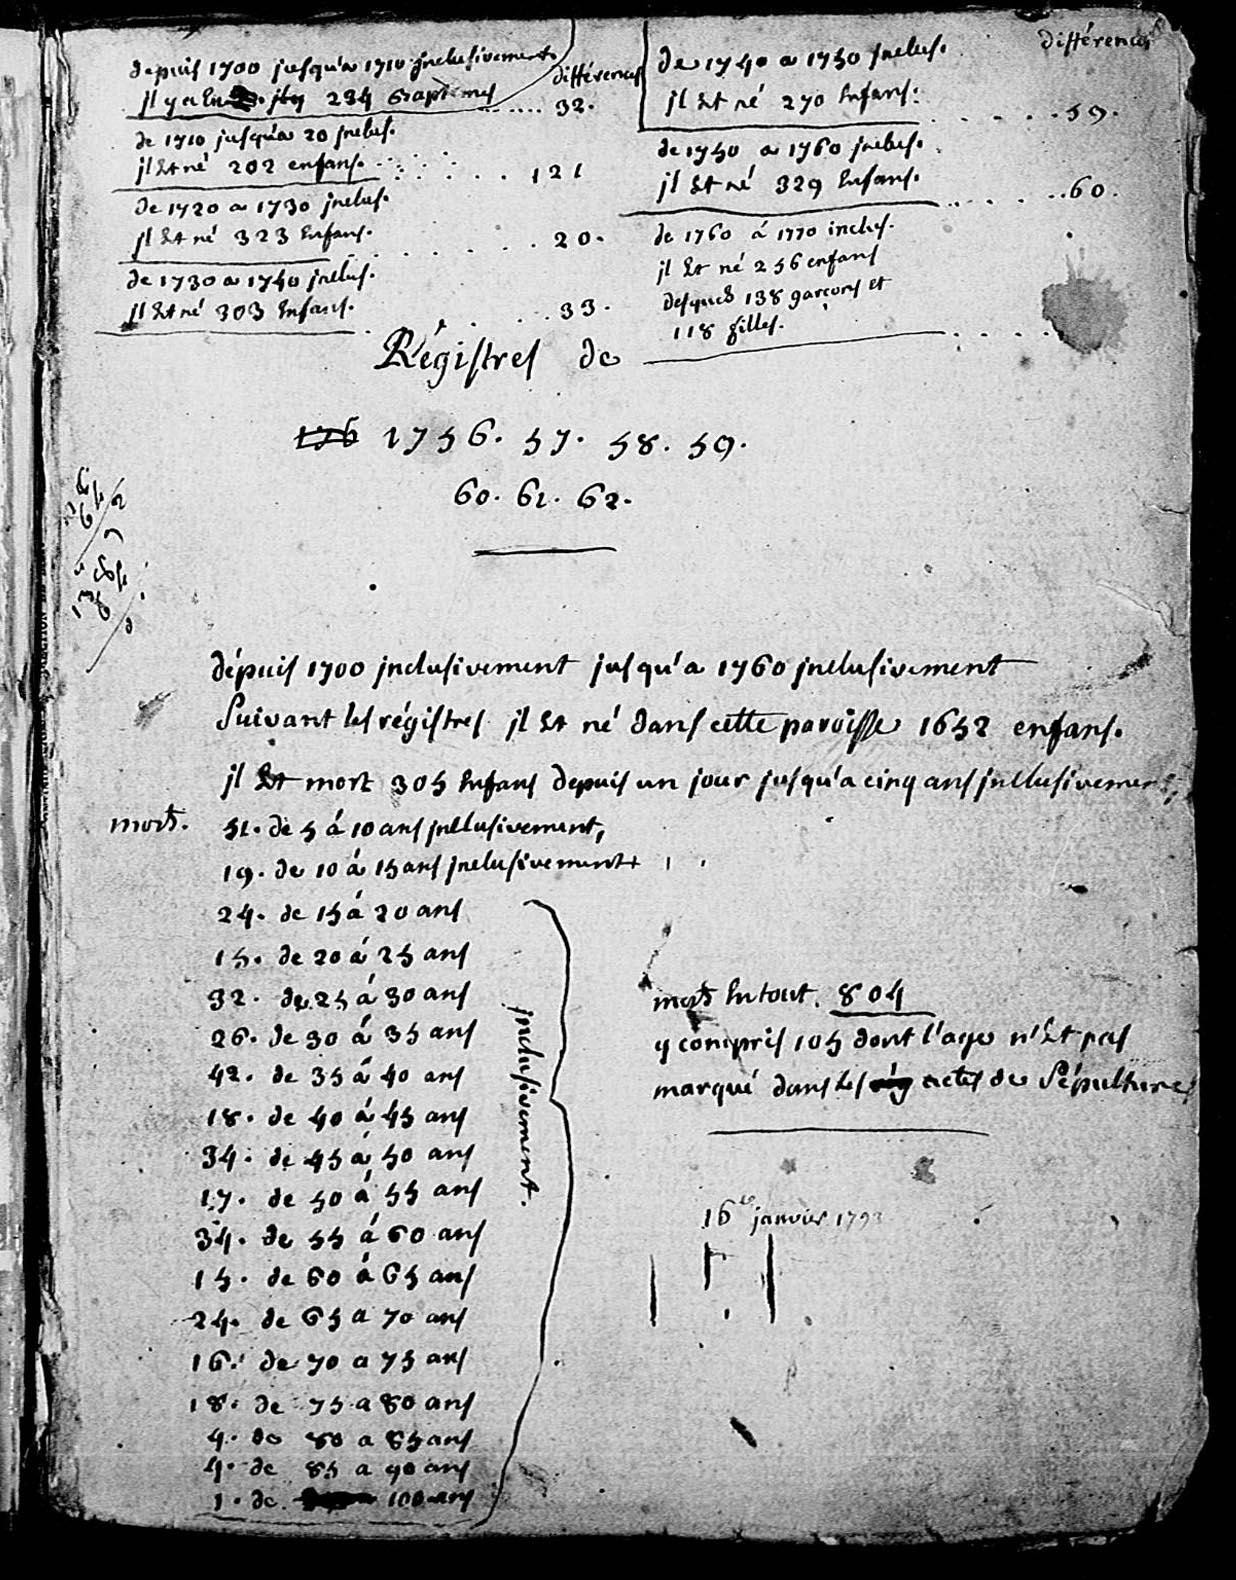 depuis 1700 jusqu'a 1710 jnclusivement
différences
jl y a eu 234 Baptemes ..... 32.
de 1710 jusqu'a 20 jnclus.
jl Est né 202 enfans. ..... 121
de 1720 a 1730 jnclus.
jl Est né 323 Enfans. ..... 20.
de 1730 a 1740 jnclus.
jl Est né 303 Enfans. ..... 33.
différences
de 1740 a 1750 jnclus.
jl Est né 270 Enfans. ..... 59.
de 1750 a 1760 jnclus.
jl Est né 329 Enfans. ..... 60.
de 1760 á 1770 inclus.
jl Est né 256 enfans
desquels 138 garçons et
118 filles.
Régistres de
176 1756. 57. 58. 59.
60. 61. 62.
dépuis 1700 jnclusivement jusqu'a 1760 jnclusivement
Suivant les régistres jl Est né dans cette paroisse 1652 enfans.
jl Est mort 305 Enfans depuis un jour jusqu'a cinq ans jnclusivement,
morts. 51. de 5 á 10 ans jnclusivement,
19. de 10 á 15 ans jnclusivement
24. de 15 á 20 ans
15. de 20 á 25 ans
32. de 25 á 30 ans
26. de 30 á 35 ans
42. de 35 á 40 ans
18. de 40 á 45 ans
34. de 45 á 50 ans
17. de 50 á 55 ans
34. de 55 á 60 ans
15. de 60 á 65 ans
24. de 65 a 70 ans
16. de 70 a 75 ans
18. de 75 a 80 ans
4. de 80 a 85 ans
4. de 85 a 90 ans
1. de 100 ans
jnclusivement.
morts En tout. 804
y compris 105 dont l'age n'Est pas
marqué dans les actes de Sépulture
16 janvier 1793